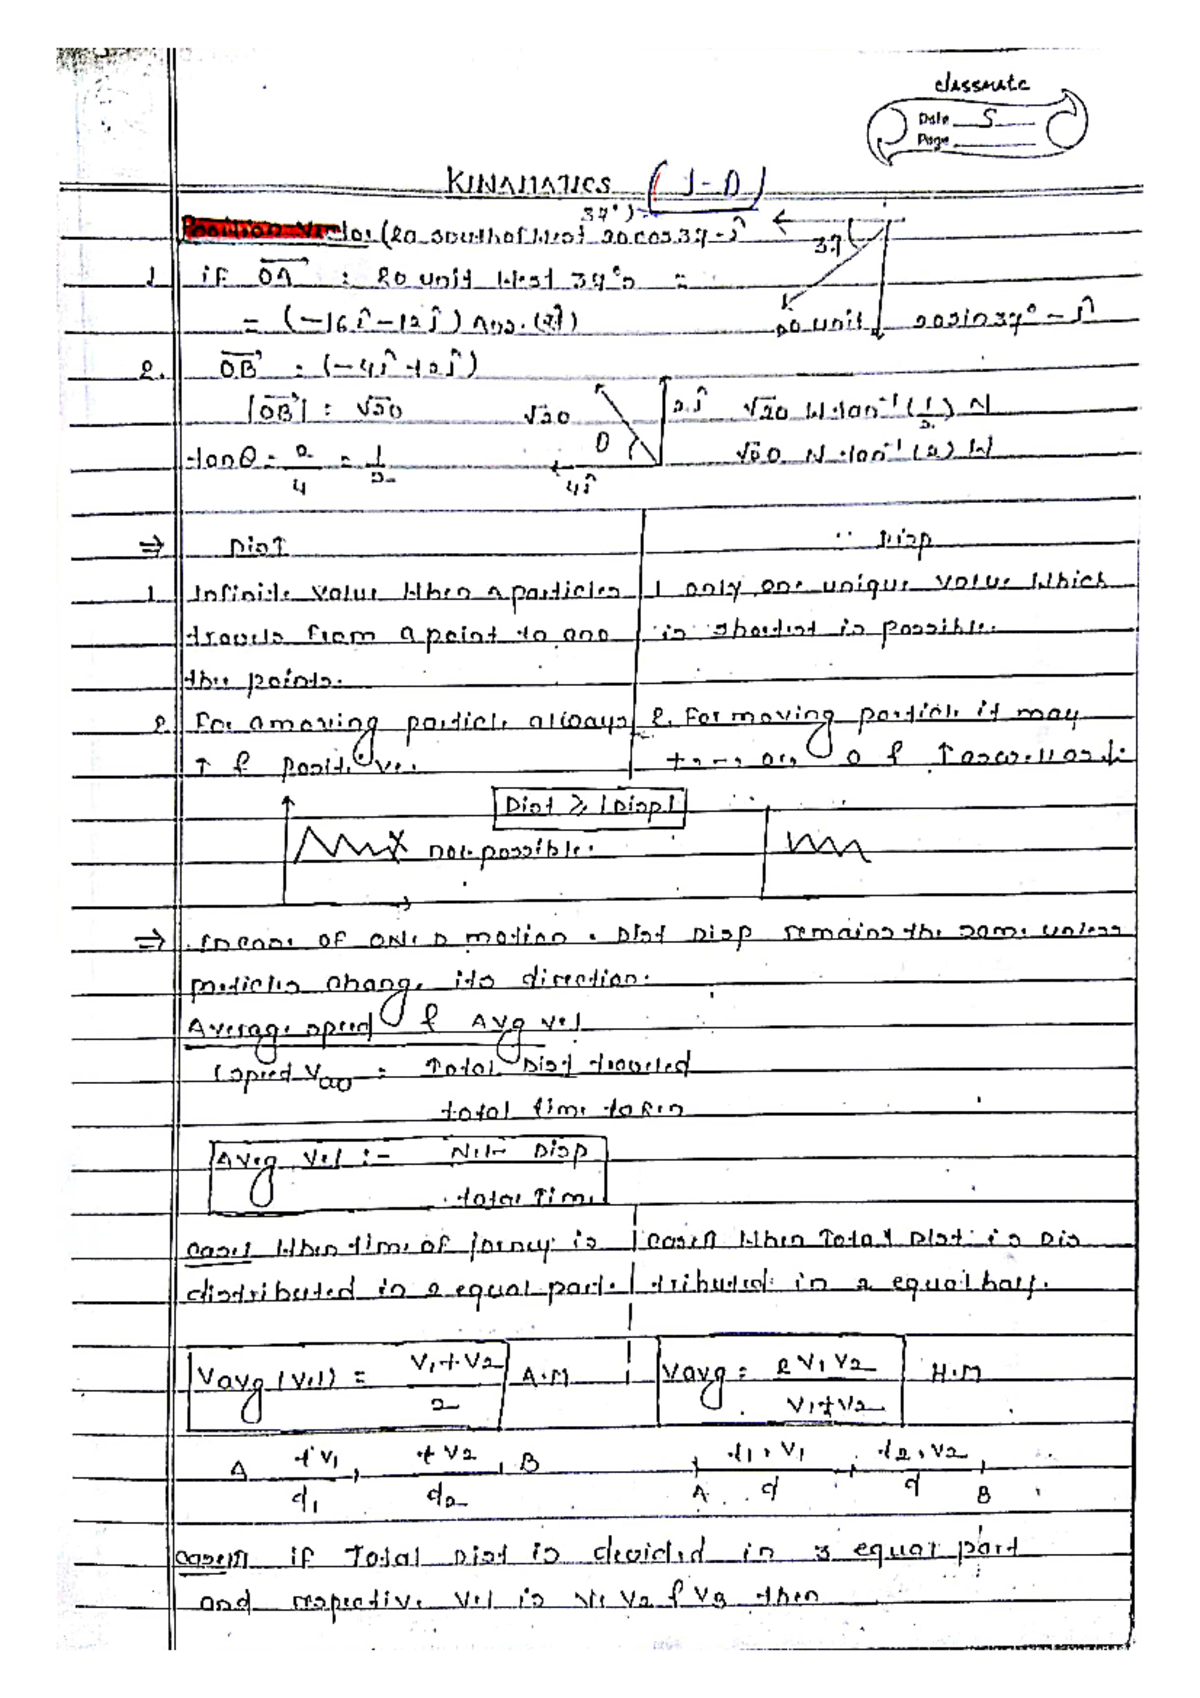 classmate
Date 5
Page
KINAMATICS (1-D)
37°)
Position Vector (20 South of West 20cos37 -î
37
1 if OA : 20 unit West 37°s =
= (-16î-12ĵ) Ans.
20 unit 20sin37° -ĵ
2. OB : (-4î+2ĵ)
|OB| = √20
√20 θ 2ĵ √20 W tan⁻¹(1/2) N
tanθ = 2/4 = 1/2
4î √20 N tan⁻¹(2) W
⇒ Dist
Disp
1 Infinite value When a particles
travels from a point to ano
the points.
1 only one unique value Which
is shortest is possible.
2. For a moving particle always
↑ & positive.
2. For moving particle it may
Dist ≥ |Disp|
not possible.
⇒ In case of One D motion. Dist Disp remains the same unless
particles change its direction.
Average speed & Avg vel
(speed Total Dist traveled
total time taken
Averg Vel :- Net Disp
total Time
Case1 When time of jorney is
distributed in 2 equal part.
CaseII When Total Dist is dis
tributed in 2 equal half.
Vavg (Vel) = V1+V2 / 2 A.M
Vavg = 2V1V2 / V1+V2 H.M
A t V1 t V2 B
d1 d2
t1, V1 t2, V2
A d d B
CaseIII if Total Dist is devided in 3 equal part
and respective Vel is V1 V2 & V3 then